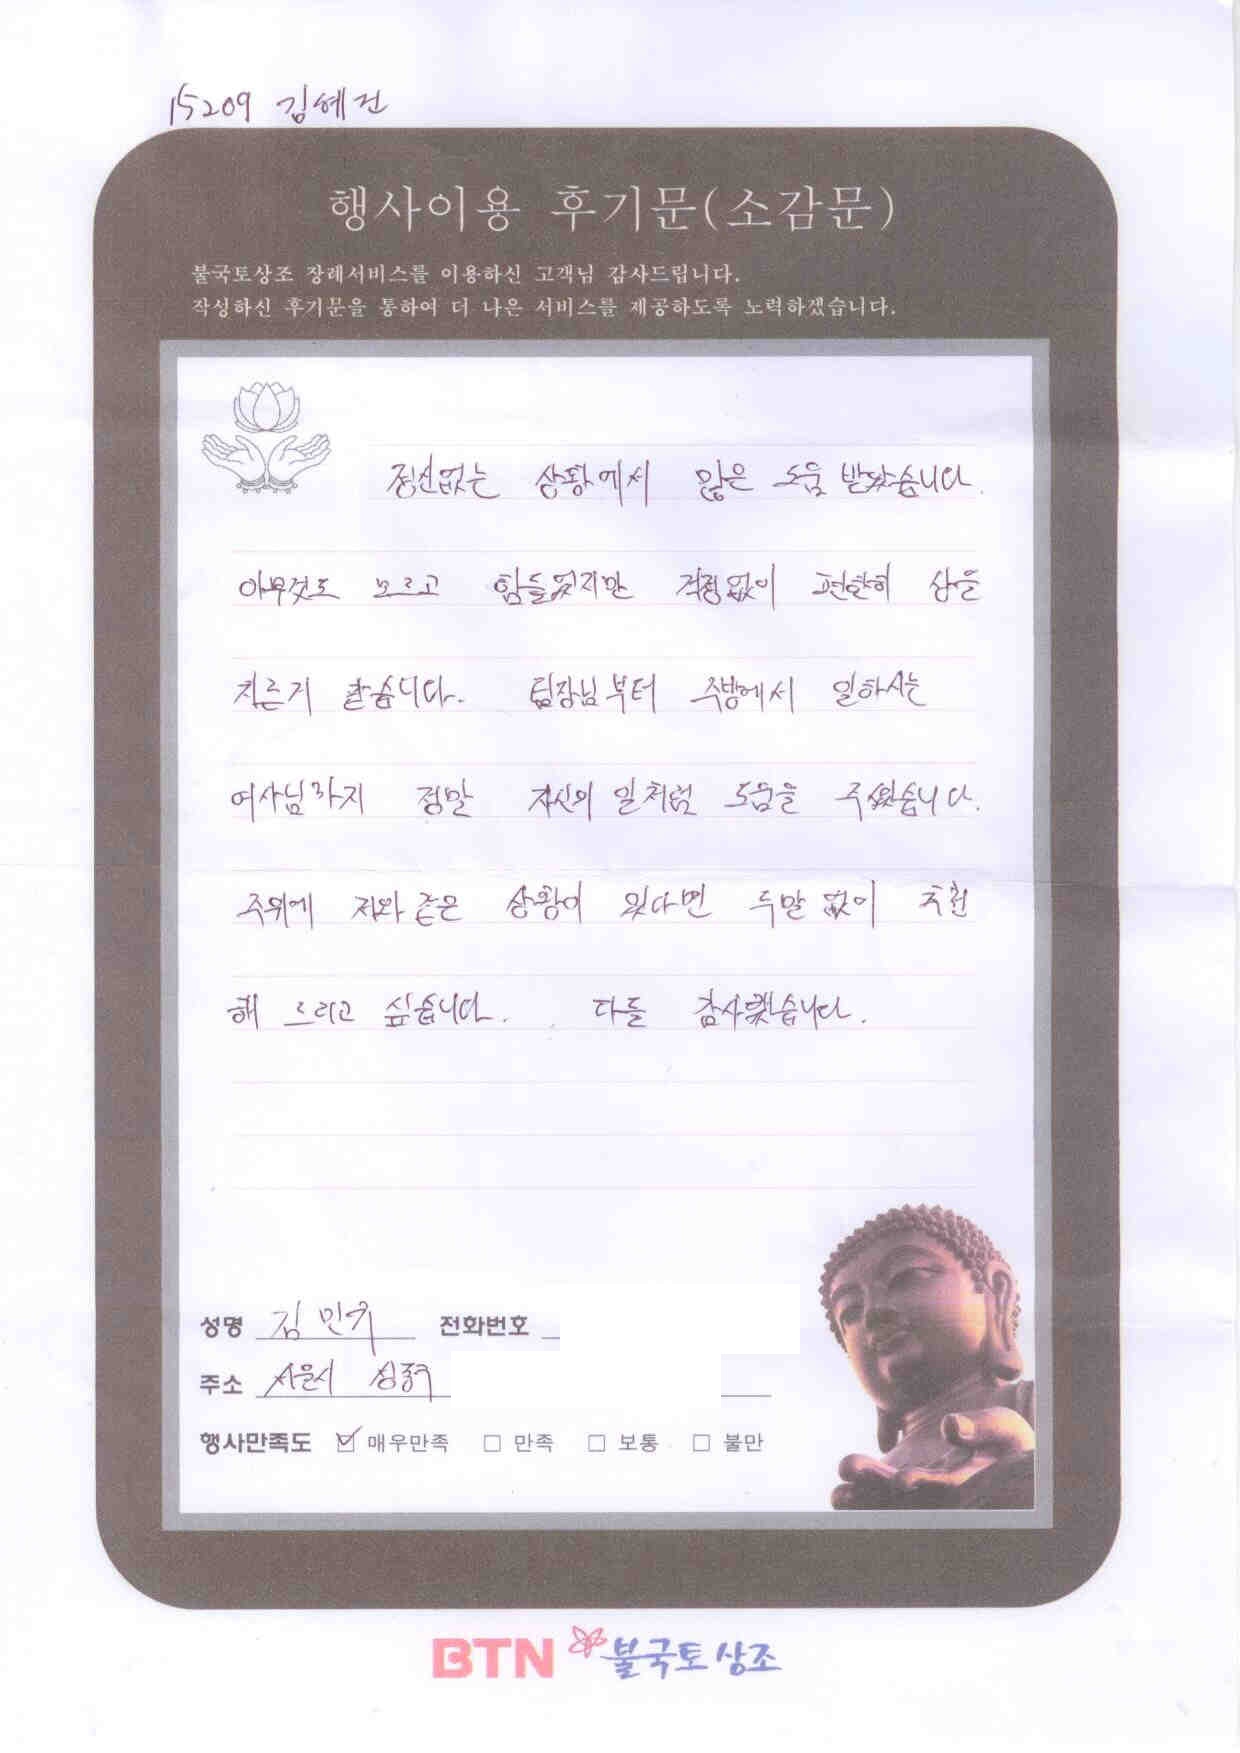 15209 김혜진
행사이용 후기문(소감문)
불국토상조 장례서비스를 이용하신 고객님 감사드립니다.
작성하신 후기문을 통하여 더 나은 서비스를 제공하도록 노력하겠습니다.
정신없는 상황에서 많은 도움 받았습니다.
아무것도 모르고 힘들었지만 걱정없이 편안히 상을
치른거 같습니다. 팀장님부터 주방에서 일하시는
여사님까지 정말 자신의 일처럼 도움을 주셨습니다.
주위에 저와 같은 상황이 있다면 두말 없이 추천
해 드리고 싶습니다. 다들 감사했습니다.
성명 김민 전화번호
주소 서울시
행사만족도 매우만족 만족 보통 불만
BTN 불국토상조